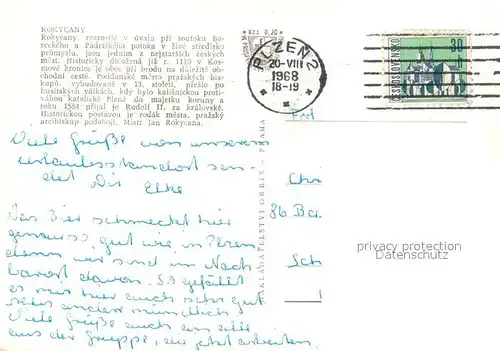 ROKYCANY
Rokycany, rozrostlé v úvalu při soutoku Bo-
reckého a Padrťského potoka v živé středisko
průmyslu, jsou jedním z nejstarších českých
měst. Historicky doložena již r. 1110 v Kos-
mově kronice je obec při brodu na důležité ob-
chodní cestě. Poddanské město pražských bis-
kupů, vybudované v 13. století, přešlo po
husitských válkách, kdy bylo kališnickou proti-
váhou katolické Plzně do majetku koruny a
roku 1584 přijal je Rudolf II. za královské.
Historickou postavou je rodák města, pražský
arcibiskup podobojí, Mistr Jan Rokycana.
Viele Grüße von unserem
Urlaubsstandort sen-
det Dir Elke
Das Bier schmeckt hier
genauso gut wie in Pilsen
denn wir sind im Nach
barort davon. Es gefällt
es mir hier auch sehr gut
alles andere mündlich
Viele Grüße auch an alle
aus der Gruppe, die jetzt arbeiten.
NAKLADATELSTVÍ ORBIS - PRAHA
Kčs 0,20
PLZEŇ 2
20-VIII
1968
18-19
ČESKOSLOVENSKO
30
Chr
86 Bar
Sch
privacy protection
Datenschutz